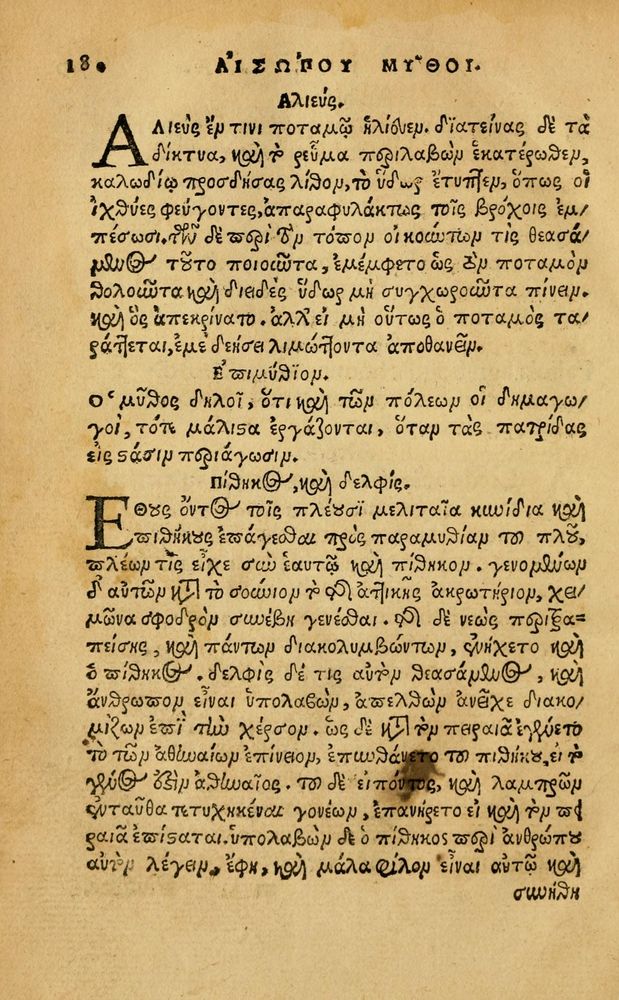 18. ΑἸΣΩΠΟΥ ΜΥ͂ΘΟΙ.
Αλιεύς.
ΑΛιεὺς ἔν τινι ποταμῷ ἡλίευεν. διατείνας δὲ τὰ
δίκτυα, καὶ τὸ ῥεῦμα περιλαβὼν ἑκατέρωθεν,
καλωδίῳ προσδήσας λίθον, τὸ ὕδωρ ἔτυπτεν, ὅπως οἱ
ἰχθύες φεύγοντες, ἀπαραφυλάκτως τοῖς βρόχοις ἐμ/
πέσωσι. τῶν δὲ περὶ τὸν τόπον οἰκούντων τὶς θεασά/
μενος τοῦτο ποιοῦντα, ἐμέμφετο ὡς τὸν ποταμὸν
θολοῦντα καὶ διειδὲς ὕδωρ μὴ συγχωροῦντα πίνειν.
καὶ ὃς ἀπεκρίνατο. ἀλλ' εἰ μὴ οὕτως ὁ ποταμὸς τα/
ράττεται, ἐμὲ δεήσει λιμώττοντα ἀποθανεῖν.
Ἐπιμύθιον.
Ο῾ μῦθος δηλοῖ, ὅτι καὶ τῶν πόλεων οἱ δημαγω/
γοὶ, τότε μάλιστα ἐργάζονται, ὅταν τὰς πατρίδας
εἰς στάσιν περιάγωσιν.
Πίθηκος, καὶ δελφίς.
ΕΘους ὄντος τοῖς πλέουσι μελιταῖα κυνίδια καὶ
πιθήκους ἐπάγεσθαι πρὸς παραμυθίαν τοῦ πλοῦ,
πλέων τὶς εἶχε σὺν ἑαυτῷ καὶ πίθηκον. γενομένων
δ' αὐτῶν κατὰ τὸ σούνιον τὸ τῆς ἀττικῆς ἀκρωτήριον, χει/
μῶνα σφοδρὸν συνέβη γενέσθαι. τῆς δὲ νεὼς περιτρα=
πείσης, καὶ πάντων διακολυμβώντων, ἐνήχετο καὶ
ὁ πίθηκος. δελφὶς δέ τις αὐτὸν θεασάμενος, καὶ
ἄνθρωπον εἶναι ὑπολαβὼν, ἀπελθὼν ἀνεῖχε διακο/
μίζων ἐπὶ τὴν χέρσον. ὡς δὲ κατὰ τὸν πειραιᾶ ἐγένετο
τὸ τῶν ἀθηναίων ἐπίνειον, ἐπυνθάνετο τοῦ πιθήκου, εἰ τὸ
γένος ἐστὶν ἀθηναῖος. τοῦ δὲ εἰπόντος, καὶ λαμπρῶν
ἐνταῦθα τετυχηκέναι γονέων, ἐπανήρετο εἰ καὶ τὸν πει
ραιᾶ ἐπίσταται. ὑπολαβὼν δὲ ὁ πίθηκος περὶ ἀνθρώπου
αὐτὸν λέγειν, ἔφη, καὶ μάλα φίλον εἶναι αὐτῷ καὶ
συνήθη